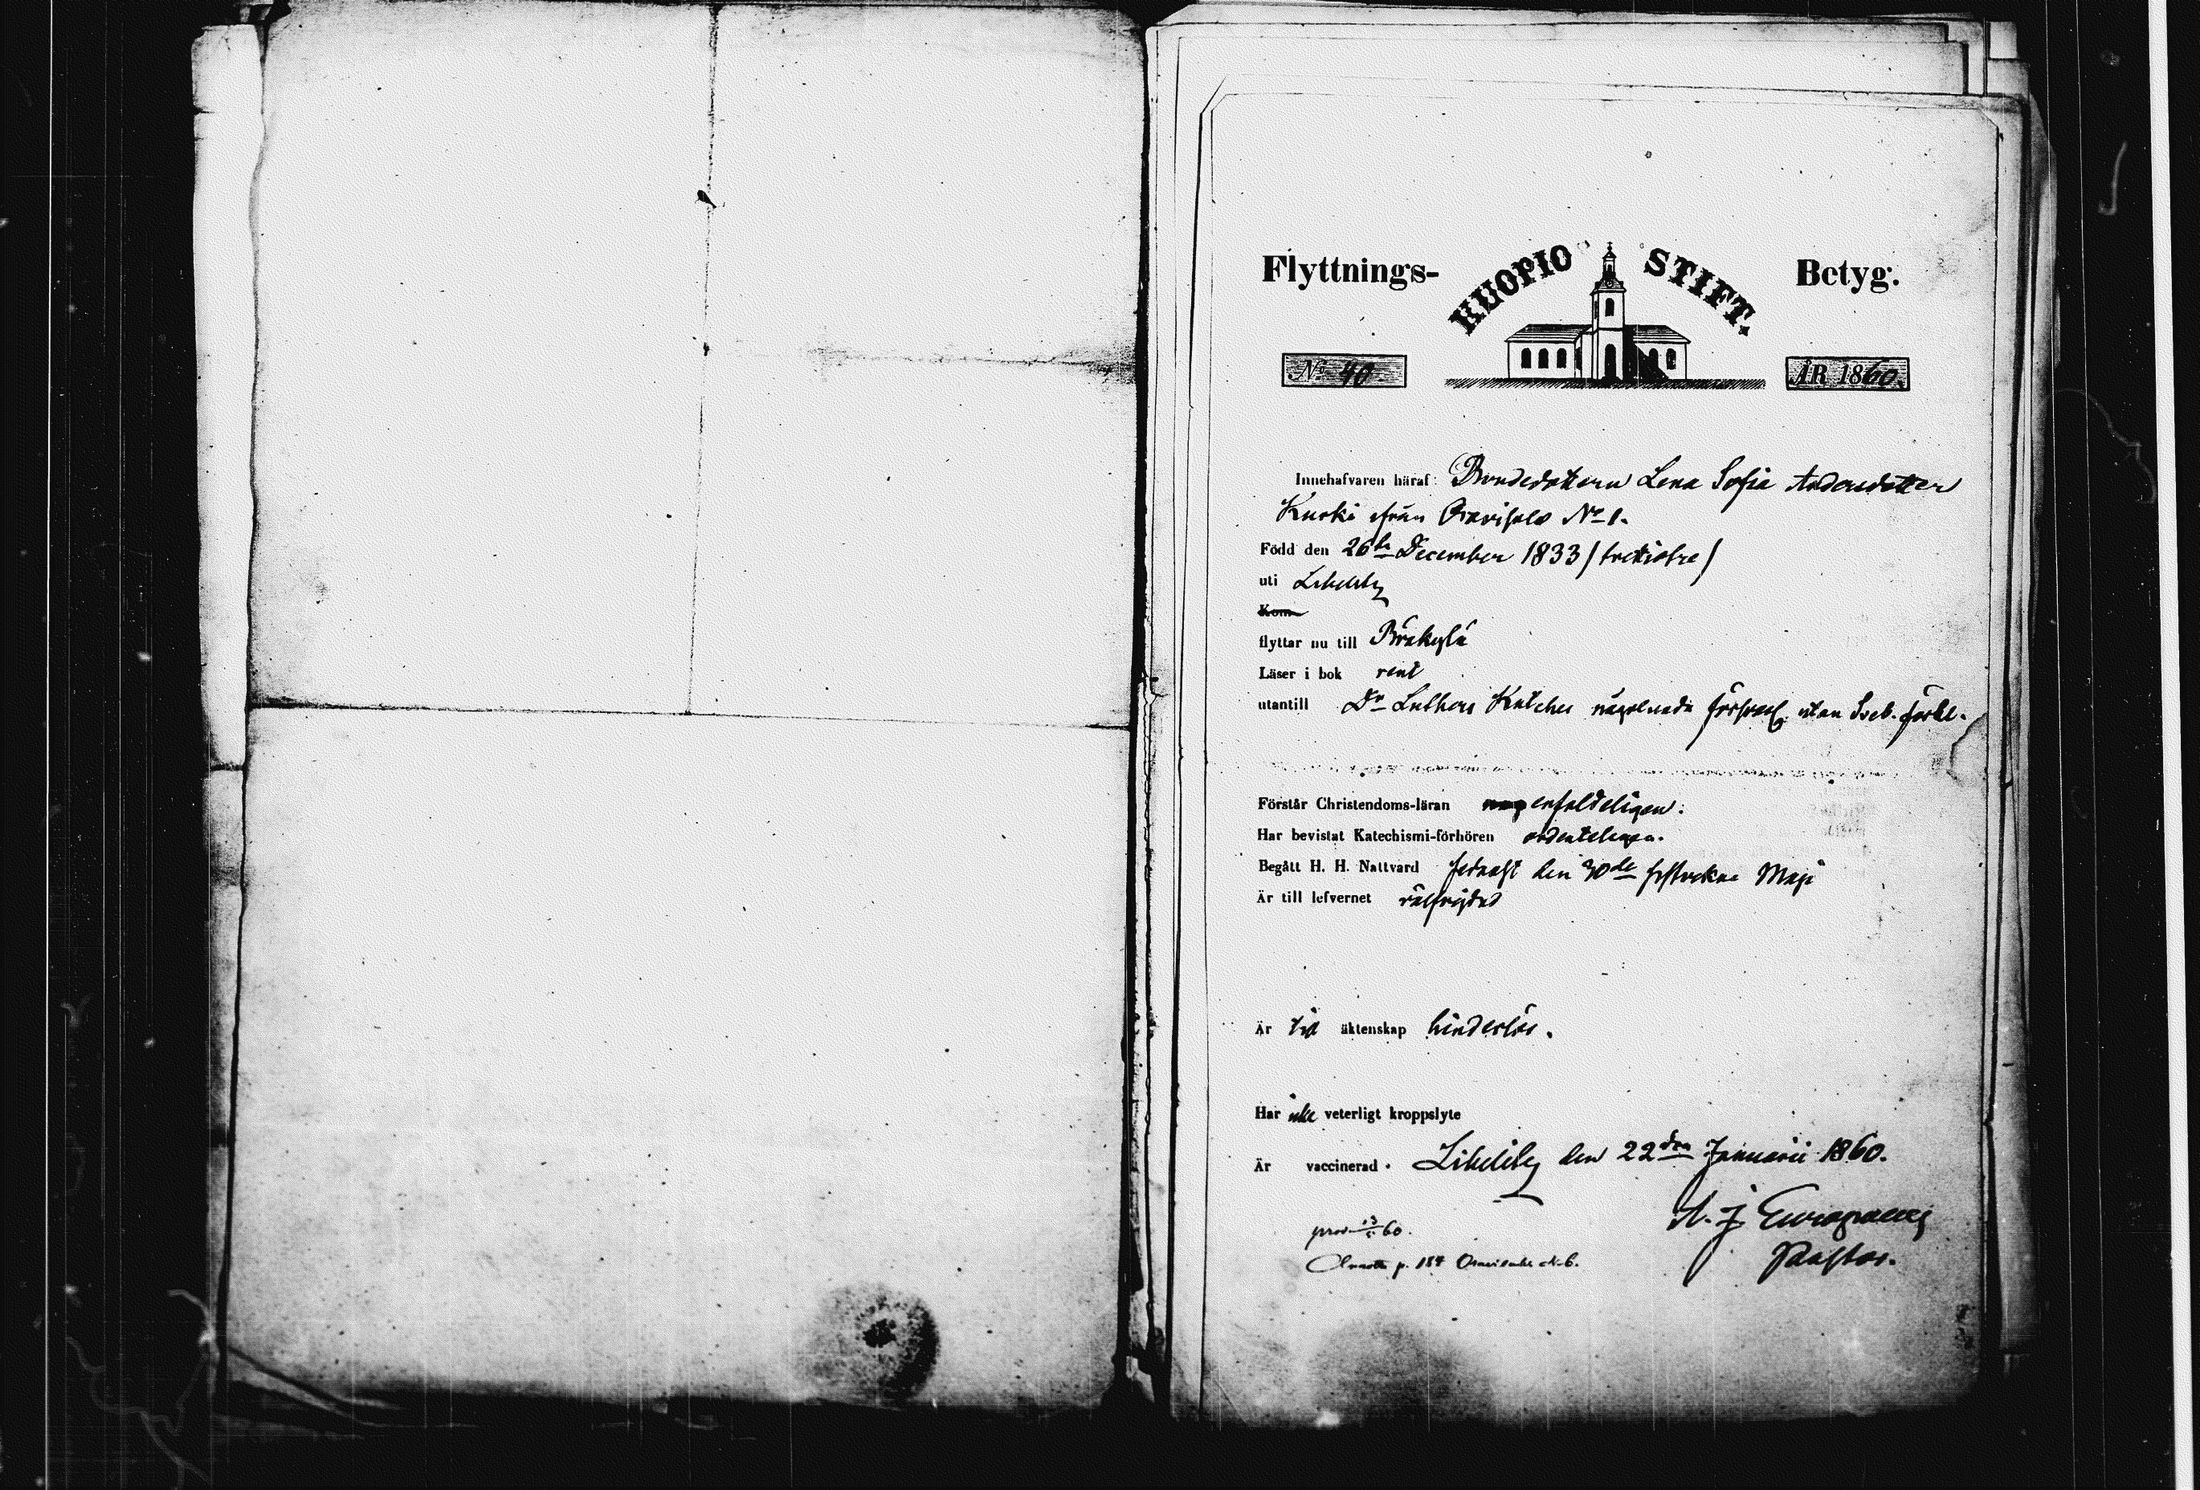 Flyttnings- KUOPIO STIFT. Betyg.
No 40. ÅR 1860.
Innehafvaren häraf: Bondedottern Lena Sofia Andersdotter
Kurki från Oravisalo No 1.
Född den 26te December 1833 (trettiotre)
uti Libelits
Kom
flyttar nu till Bräkylä
Läser i bok rent
utantill Dr Luthers Katches någorlunda försvarl. utan Sveb. förkl.
Förstår Christendoms-läran enfaldeligen.
Har bevistat Katechismi-förhören ordenteligen.
Begått H. H. Nattvard sednast den 30de sistvekne Maji
Är till lefvernet välfrejdad
Är till äktenskap hinderlös.
Har icke veterligt kroppslyte
Är vaccinerad. Libelits den 22dra Januarii 1860.
A. J. Europaeus
prod 60.
Pastor.
p. 184 Oravisalo No 6.